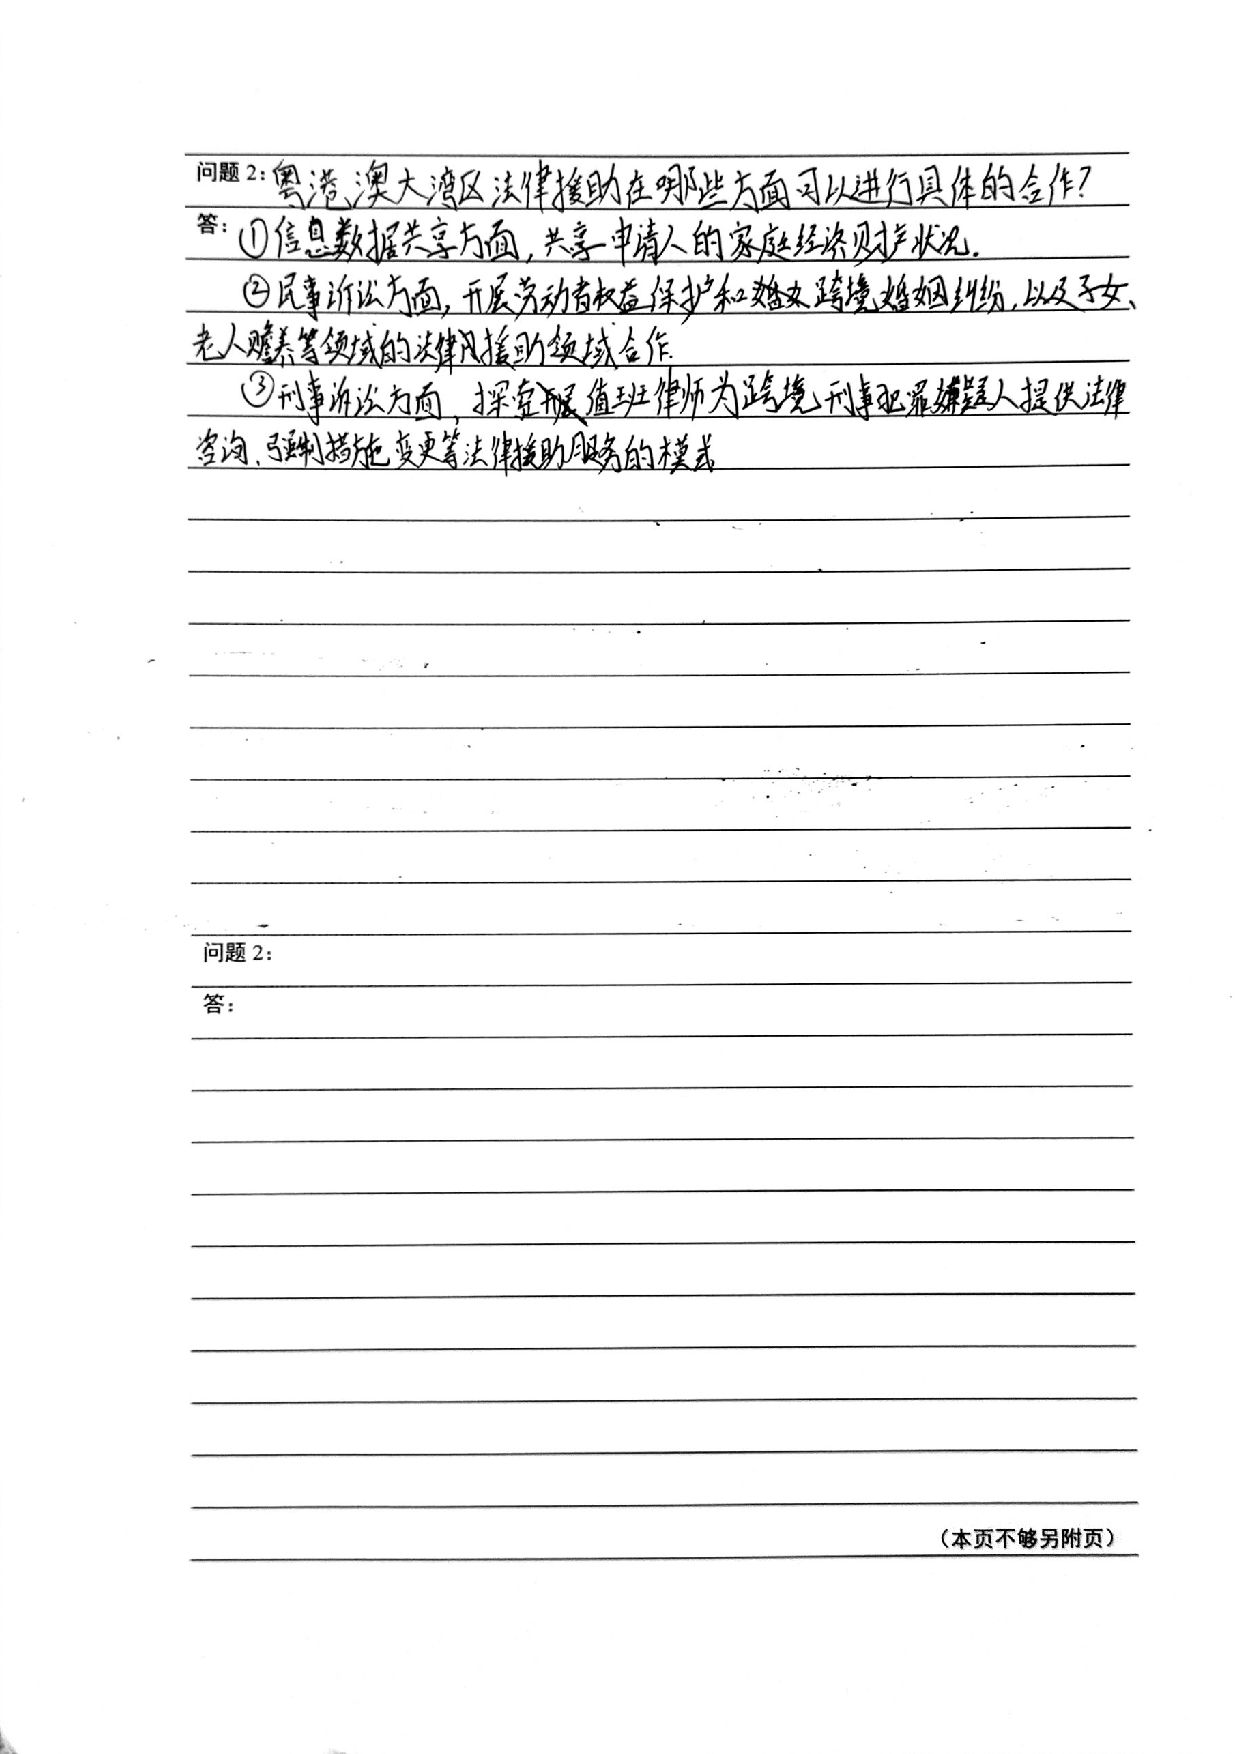 问题2:粤港澳大湾区法律援助在哪些方面可以进行具体的合作?
答:①信息数据共享方面,共享申请人的家庭经济财产状况.
②民事诉讼方面,开展劳动者权益保护和跨境婚姻纠纷,以及子女、
老人赡养等领域的法律援助领域合作.
③刑事诉讼方面,探索开展值班律师为跨境刑事犯罪嫌疑人提供法律
咨询、强制措施变更等法律援助服务的模式
问题2:
答:
(本页不够另附页)